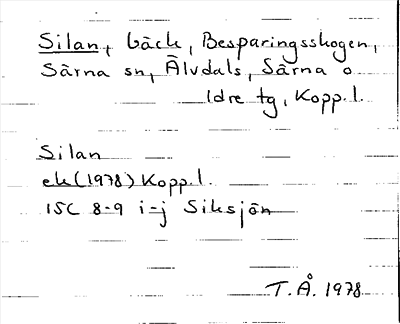 Silan, bäck, Besparingsskogen,
Särna sn, Älvdals, Särna o
Idre tg, Kopp.l.
Silan
ek (1978) Kopp.l.
15C 8-9 i-j Siksjön
T.Å. 1978